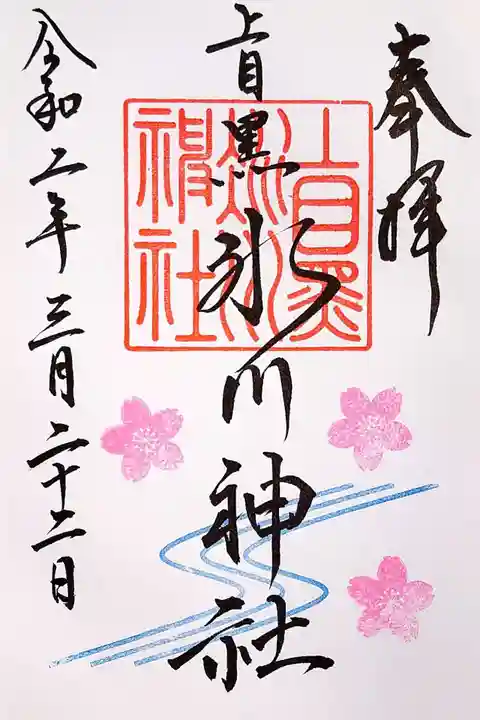 奉拝
上目黒氷川神社
上目黒
氷川
神社
令和二年三月二十二日